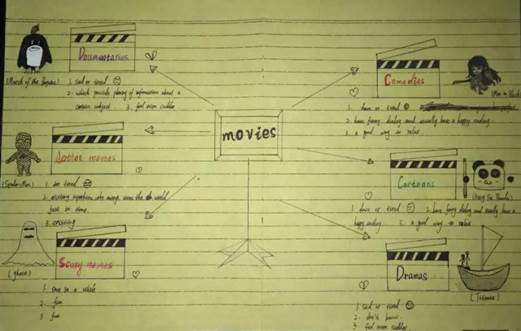 movies
Documentaries
(March of the Penguins)
1. sad or tired
2. which provide plenty of information about a
certain subject 3. feel even sadder
Action movies
(Spider-Man)
1. sad tired
just in time
3. exciting
Scary movies
(ghost)
1. once in a while
2. fun
3. fun
Comedies
(Men in Black)
1. down or tired
2. have funny dialog and usually have a happy ending
3. a good way to relax
Cartoons
(Kung Fu Panda)
1. down or tired 2. have funny dialog and usually have a
happy ending 3. a good way to relax
Dramas
(Titanic)
1. sad or tired
3. feel even sadder